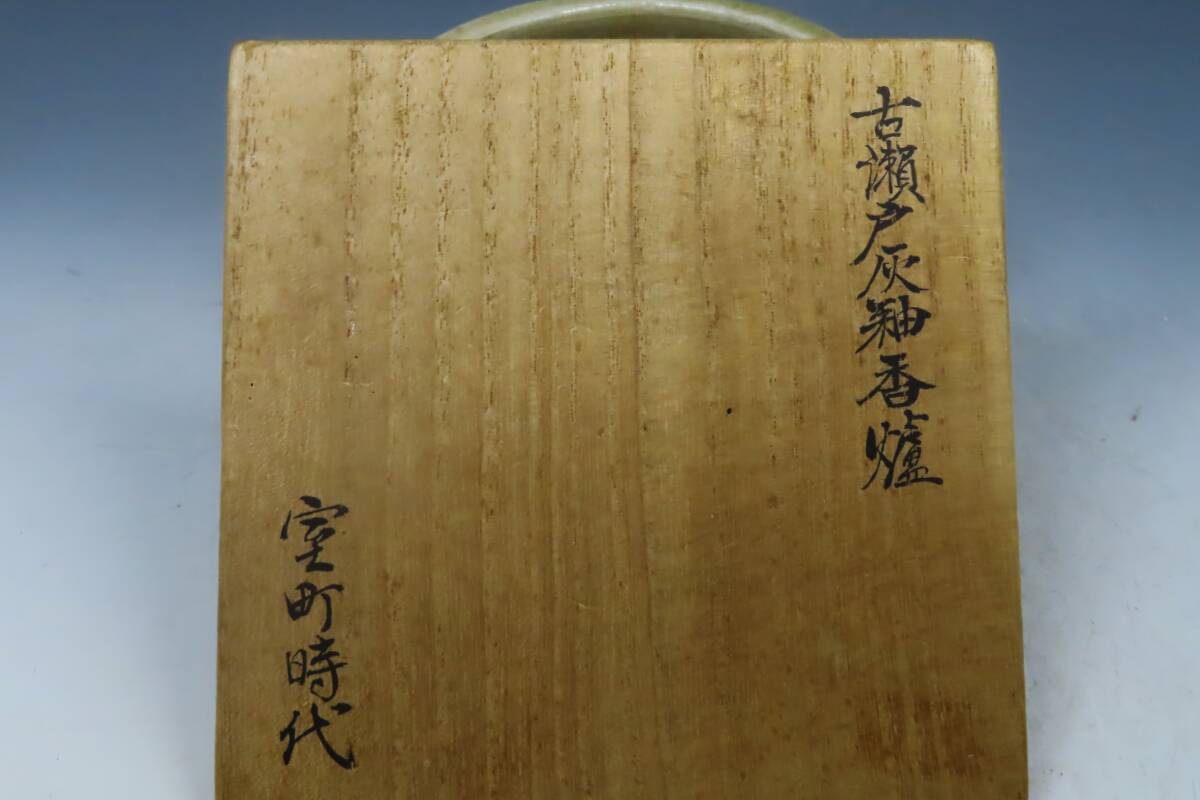 古瀬戸灰釉香爐
室町時代